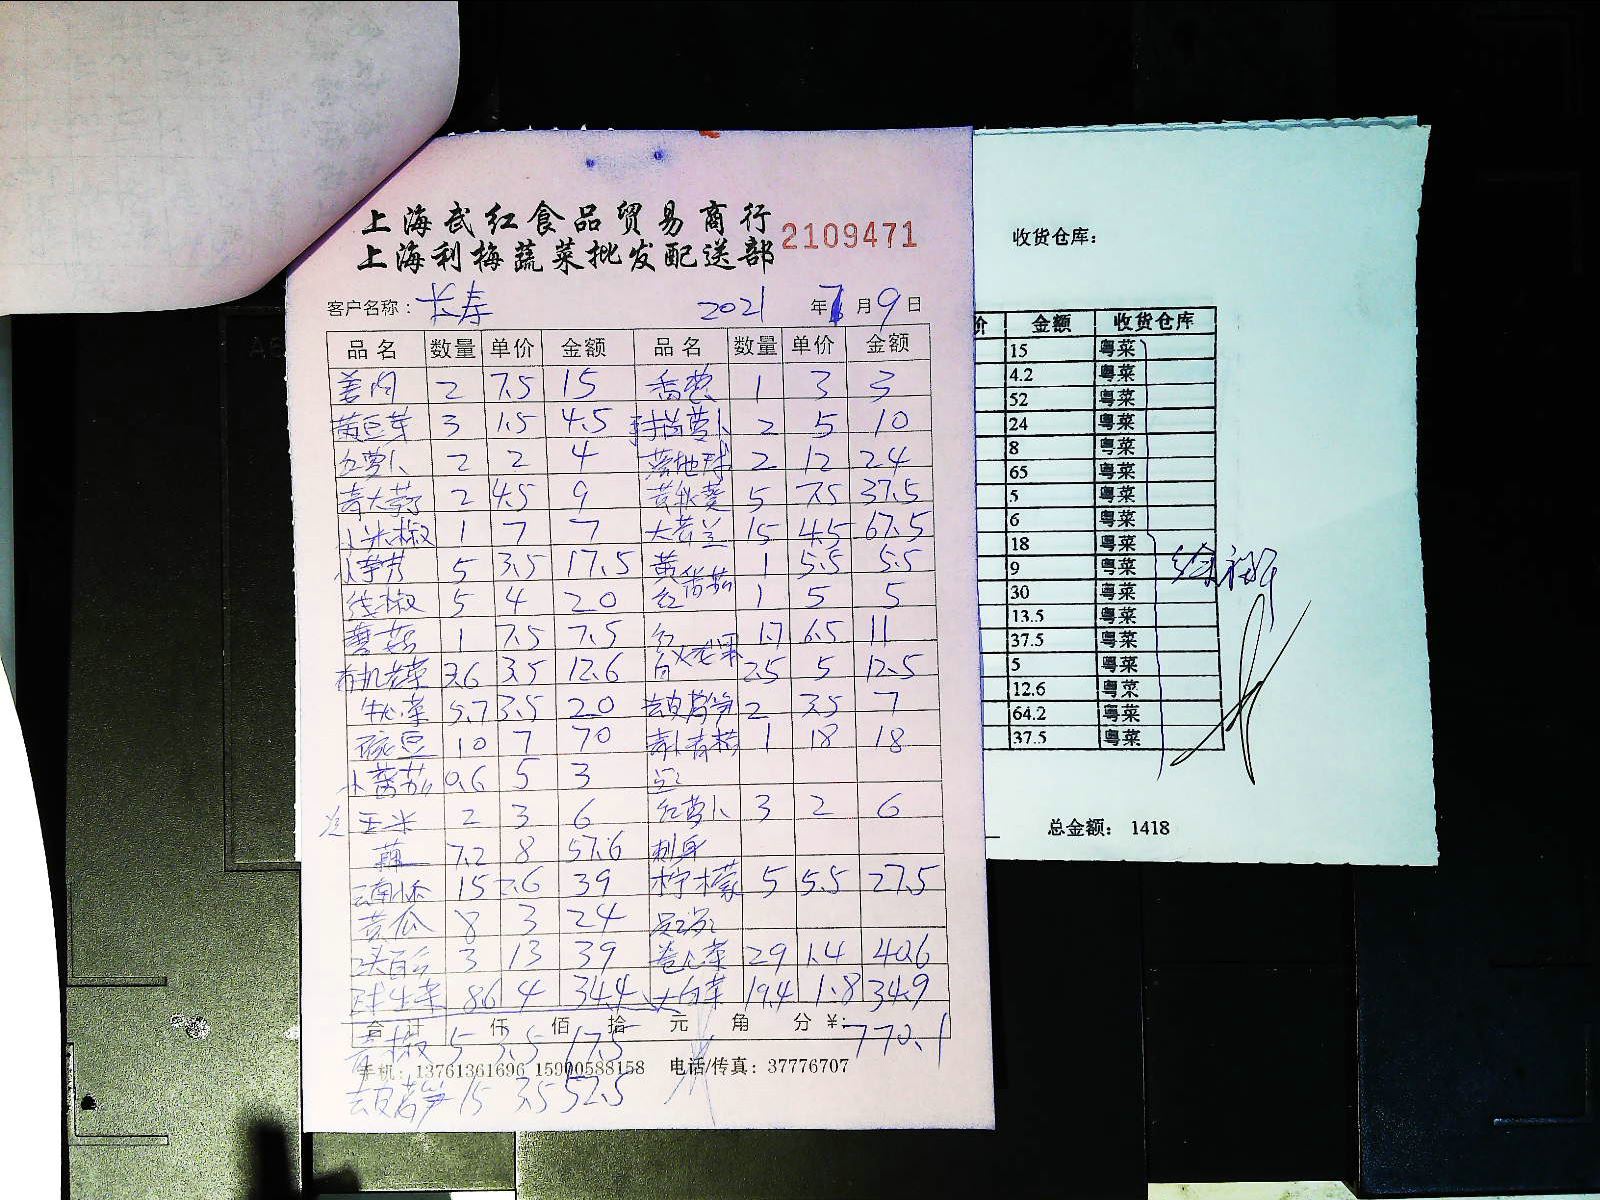 上海武红食品贸易商行
上海利梅蔬菜批发配送部
2109471
客户名称: 长寿 2021 年 7 月 9 日
品名 数量 单价 金额 品名 数量 单价 金额
姜肉 2 7.5 15 香葱 1 3 3
黄豆芽 3 1.5 4.5 萝卜 2 5 10
红萝卜 2 2 4 2 12 24
青大 2 4.5 9 黄秋葵 5 7.5 37.5
小米椒 1 7 7 大芥兰 15 4.5 67.5
小芋艿 5 3.5 17.5 黄 1 5.5 5.5
线椒 5 4 20 红 番茄 1 5 5
蘑菇 1 7.5 7.5 红 1.7 6.5 11
有机花菜 3.6 3.5 12.6 白 火龙果 2.5 5 12.5
牛心菜 5.7 3.5 20 去皮莴笋 2 3.5 7
豌豆 10 7 70 青小青柑 1 18 18
小番茄 0.6 5 3
玉米 2 3 6 红萝卜 3 2 6
藕 7.2 8 57.6 刺身
云南小瓜 15 2.6 39 柠檬 5 5.5 27.5
黄瓜 8 3 24 员工
西芹百合 3 13 39 卷心菜 29 1.4 40.6
球生菜 8.6 4 34.4 大白菜 19.4 1.8 34.9
合计 仟 佰 拾 元 角 分 ¥: 770.1
青椒 5 3.5 17.5
手机: 13761361696 15900588158 电话/传真: 37776707
去皮莴笋 15 3.5 52.5
收货仓库:
价 金额 收货仓库
15 粤菜
4.2 粤菜
52 粤菜
24 粤菜
8 粤菜
65 粤菜
5 粤菜
6 粤菜
18 粤菜
9 粤菜
30 粤菜
13.5 粤菜
37.5 粤菜
5 粤菜
12.6 粤菜
64.2 粤菜
37.5 粤菜
总金额: 1418